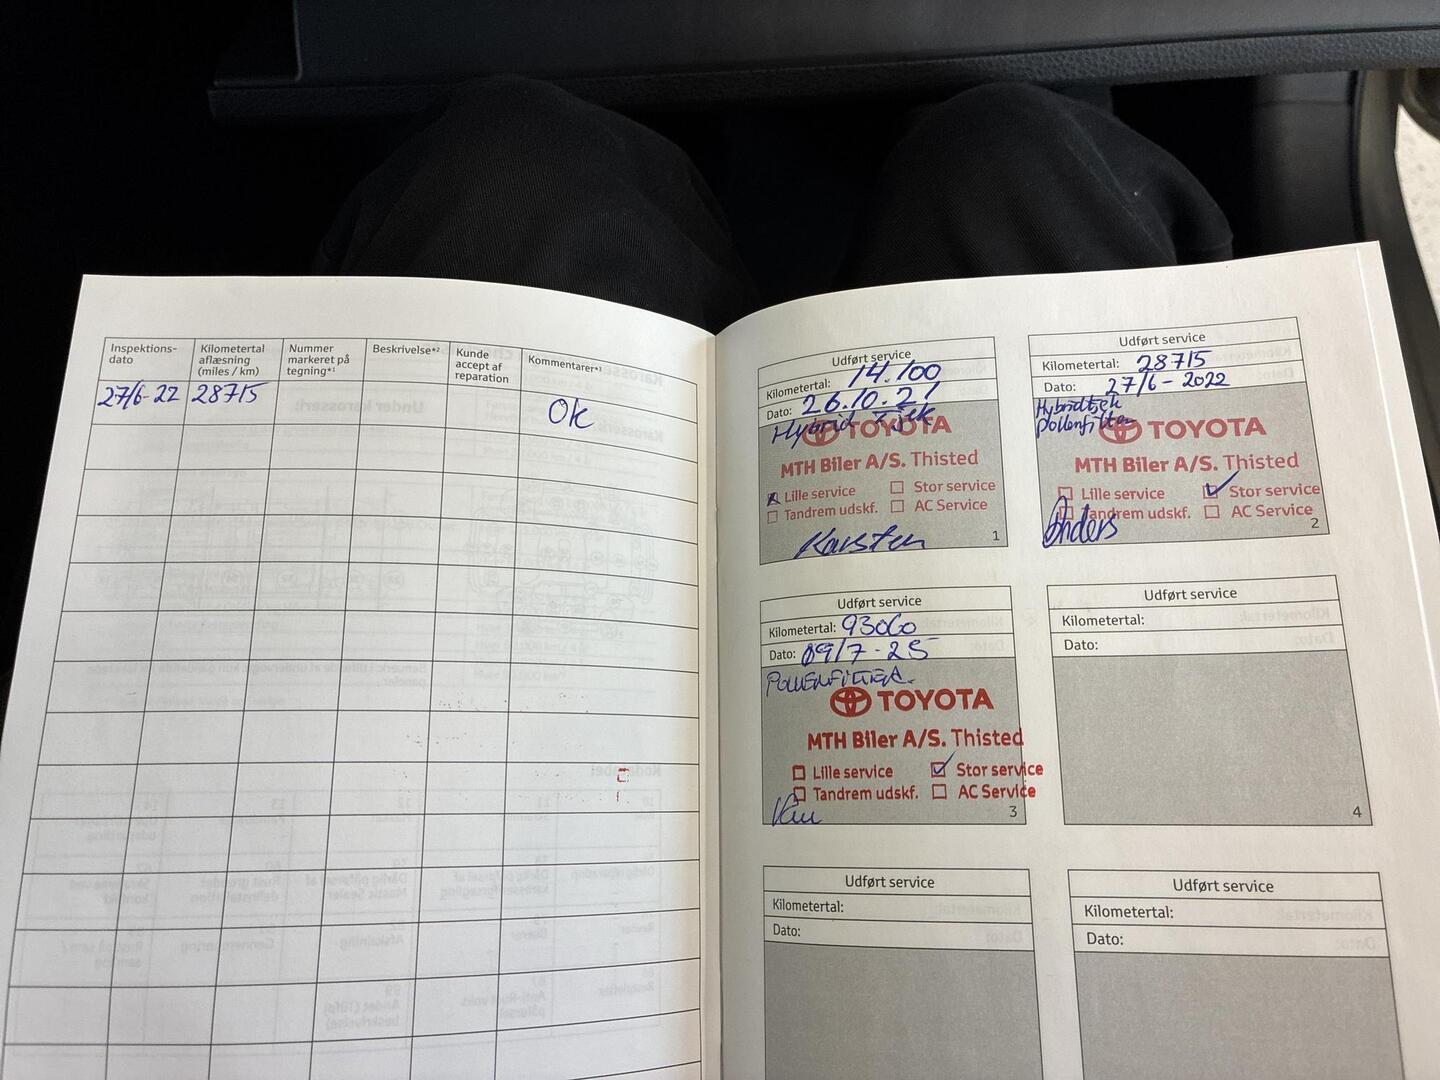 Inspektions-
dato
Kilometertal
aflæsning
(miles / km)
Nummer
markeret på
tegning*¹
Beskrivelse*²
Kunde
accept af
reparation
Kommentarer*³
27/6-22 28715
Ok
Udført service
Kilometertal: 14.100
Dato: 26.10.21
Hybrid Tjek
TOYOTA
MTH Biler A/S. Thisted
Lille service
Stor service
Tandrem udskf.
AC Service
Karsten
1
Udført service
Kilometertal: 28715
Dato: 27/6-2022
Hybridtjek
pollenfilter
TOYOTA
MTH Biler A/S. Thisted
Lille service
Stor service
Tandrem udskf.
AC Service
Anders
2
Udført service
Kilometertal: 93060
Dato: 09/7-25
POLLENFILTER.
TOYOTA
MTH Biler A/S. Thisted
Lille service
Stor service
Tandrem udskf.
AC Service
3
Udført service
Kilometertal:
Dato:
4
Udført service
Kilometertal:
Dato:
Udført service
Kilometertal:
Dato: